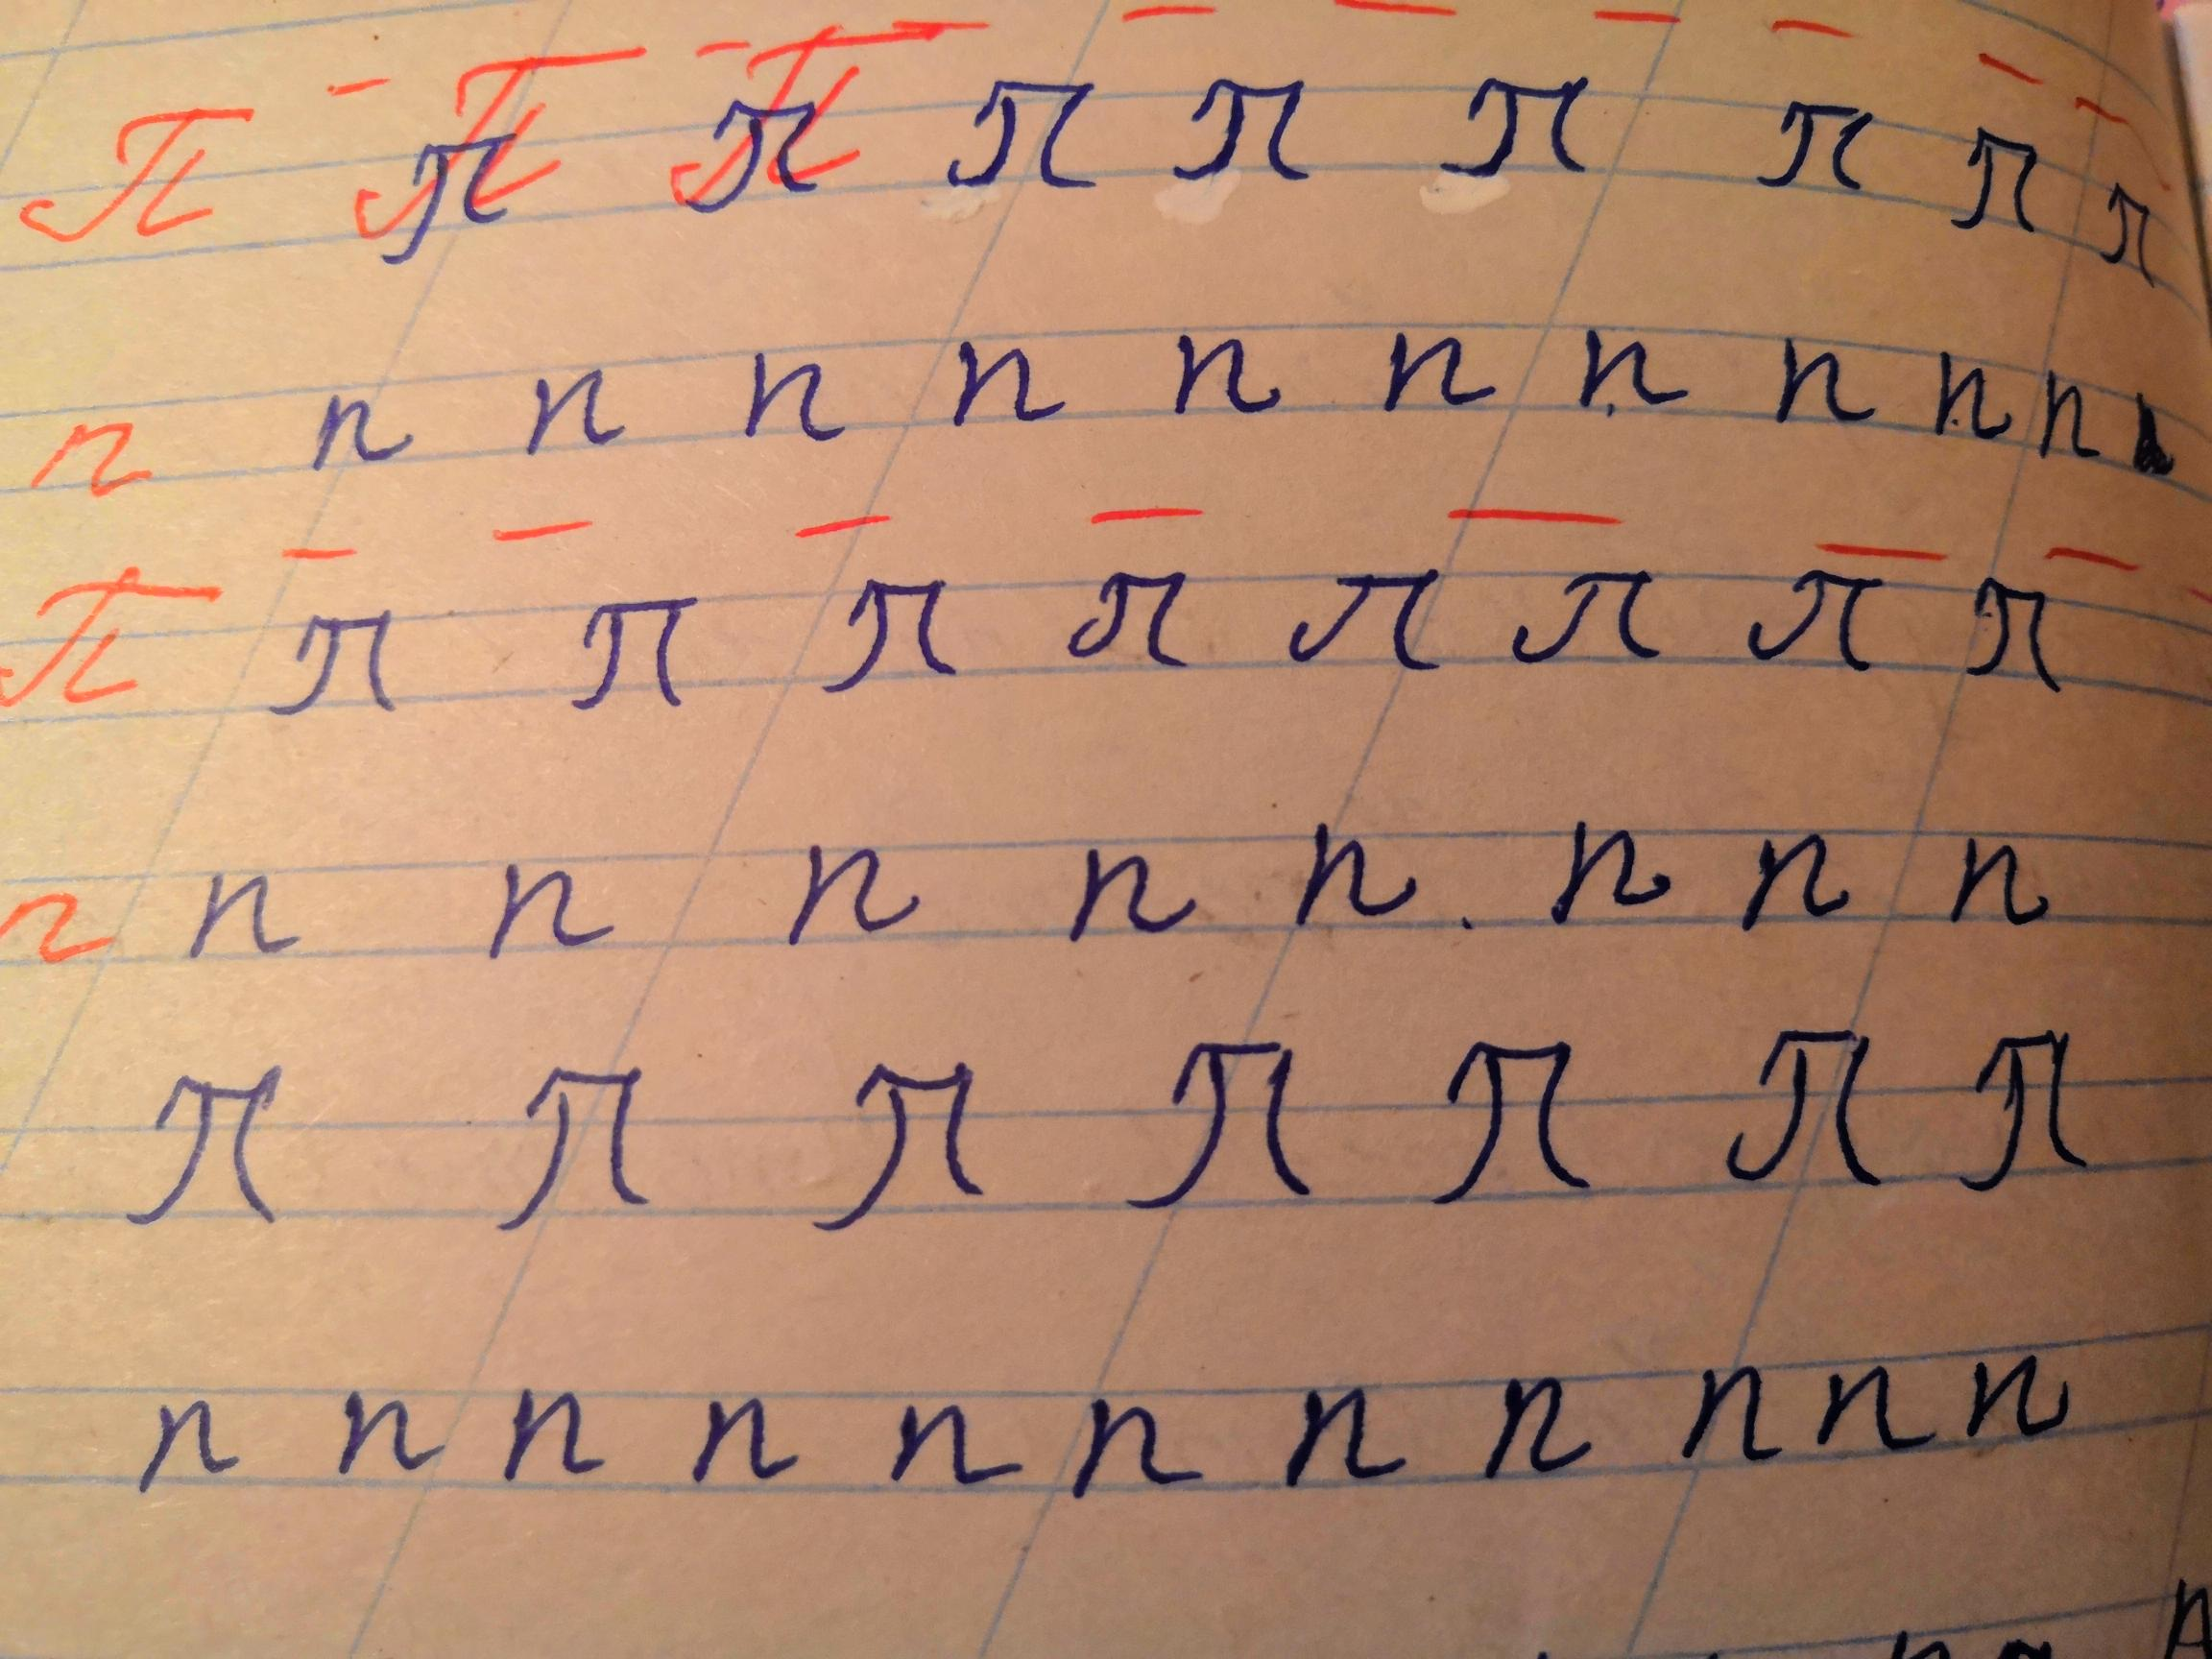 П П П П П П П П П П П
п п п п п п п п п п п
П П П П П П П П П
п п п п п п п п п
П П П П П П П
п п п п п п п п п п п